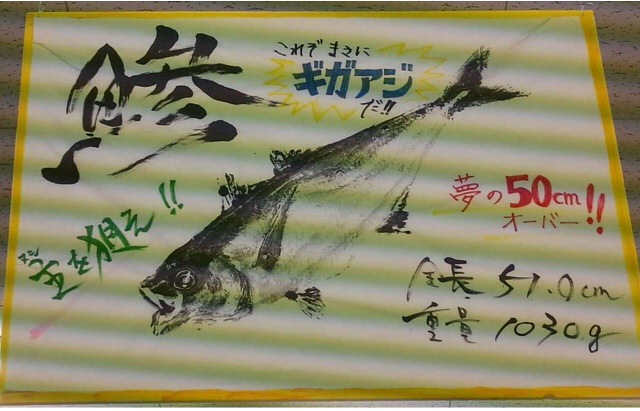 鯵
これぞ まさに
ギガアジ
だ!!
主を狙え!!
夢の50cm
オーバー!!
全長 51.0cm
重量 1030g